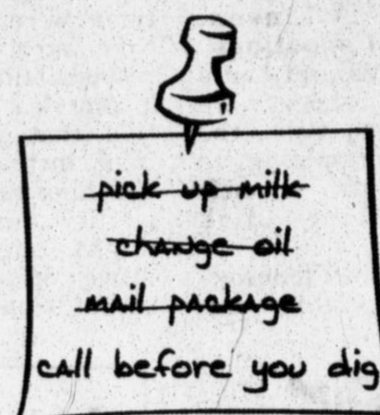 pick up milk
change oil
mail package
call before you dig